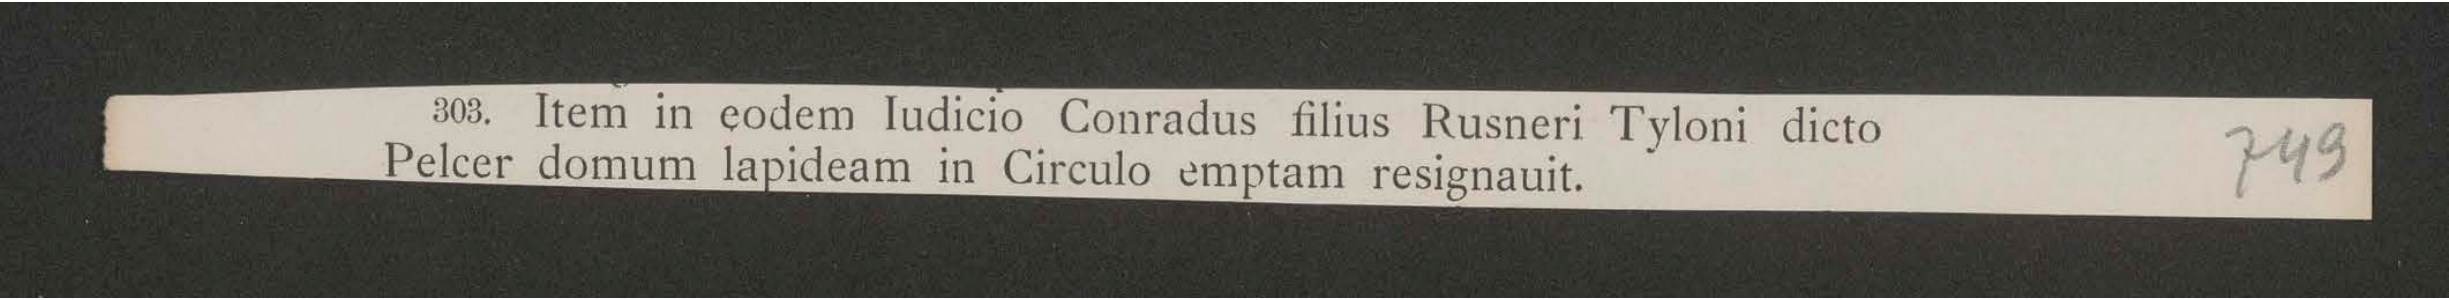 303. Item in eodem Iudicio Conradus filius Rusneri Tyloni dicto
Pelcer domum lapideam in Circulo emptam resignauit.
749